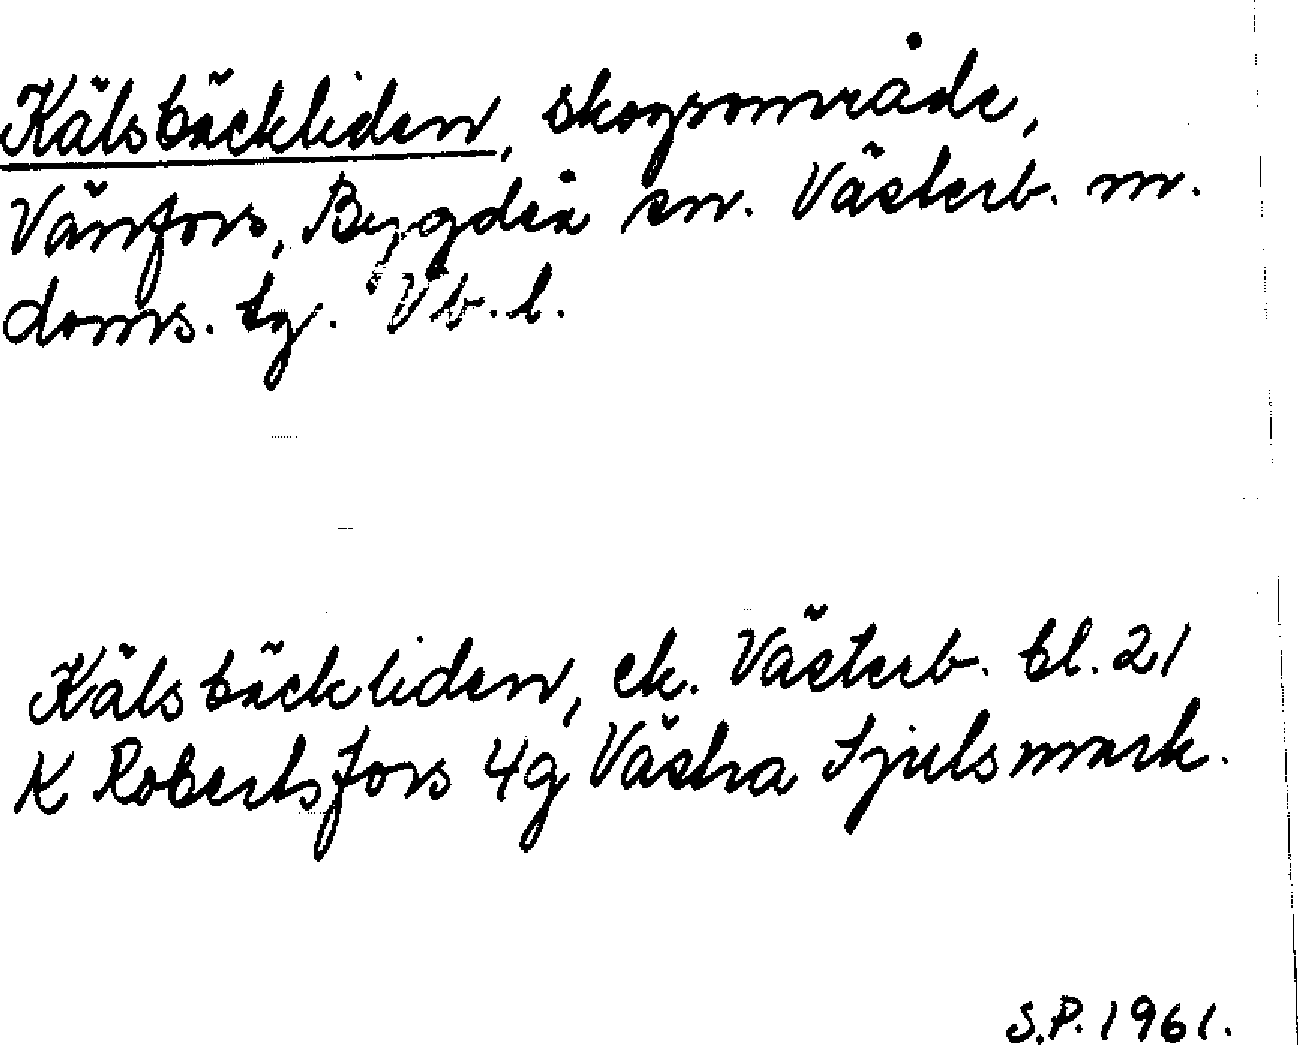 Kälsbäckliden, skogsområde,
Vänfors, Bygdeå sn. Västerb. m.
doms. tg. Vb. l.
Kälsbäckliden, ek. Västerb. bl. 21
K Robertsfors 4g Västra Sjulsmark.
S.P. 1961.